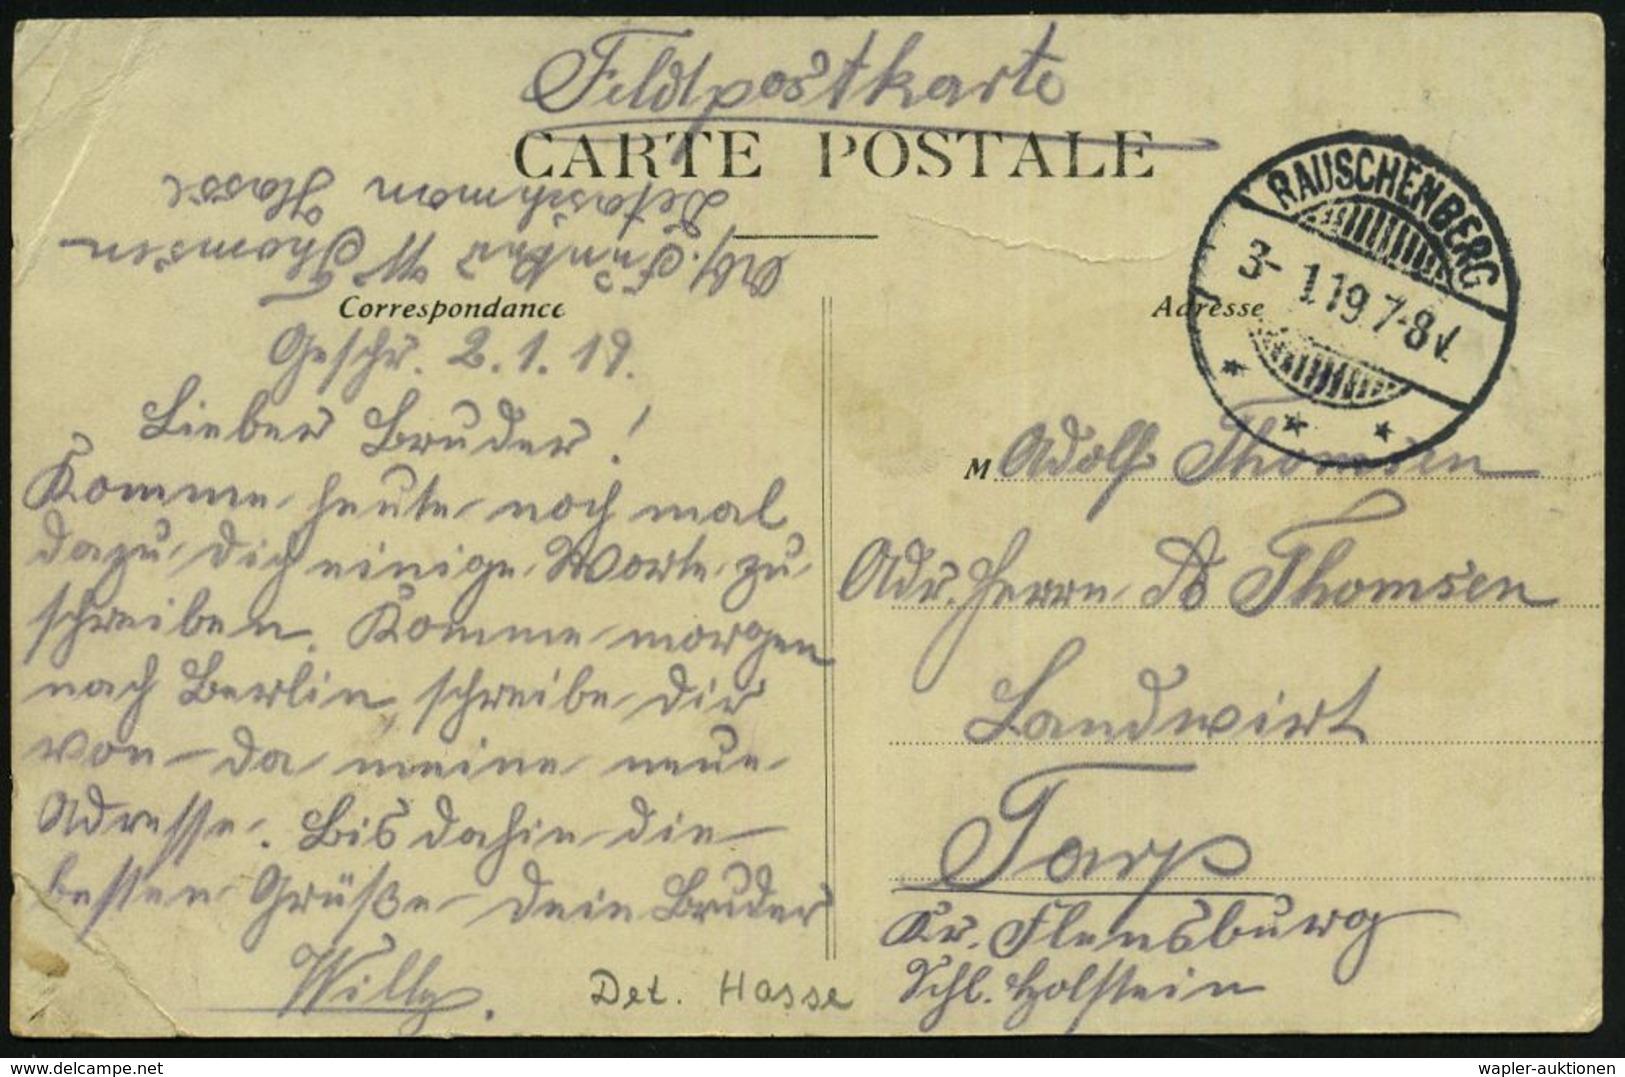 Feldpostkarte
CARTE POSTALE
RAUSCHENBERG
3-1.19.7-8V.
Abs. Funker W Thomsen
Detaschman Hasse
Correspondance
Geschr. 2.1.19.
Lieber Bruder!
Komme heute noch mal
dazu, dich einige Worte zu
schreiben. Komme morgen
nach Berlin, schreibe dir
von da meine neue
Adresse. Bis dahin die
besten Grüße dein Bruder
Willy.
Det. Hasse
Adresse
M Adolf Thomsen
Adr. Herrn Thomsen
Landwirt
Tarp
Kr. Flensburg
Schl. Holstein
wapler-auktionen
www.delcampe.net